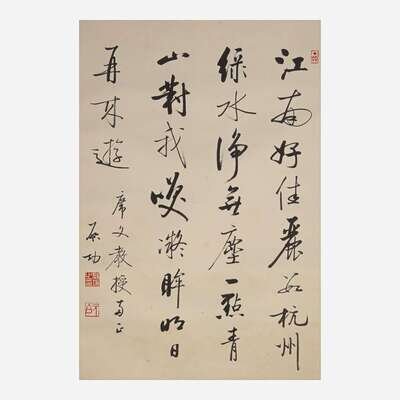 江南好佳麗数杭州
綠水净無塵一點青
山對我笑凝眸明日
再來遊
席文教授兩正
啟功